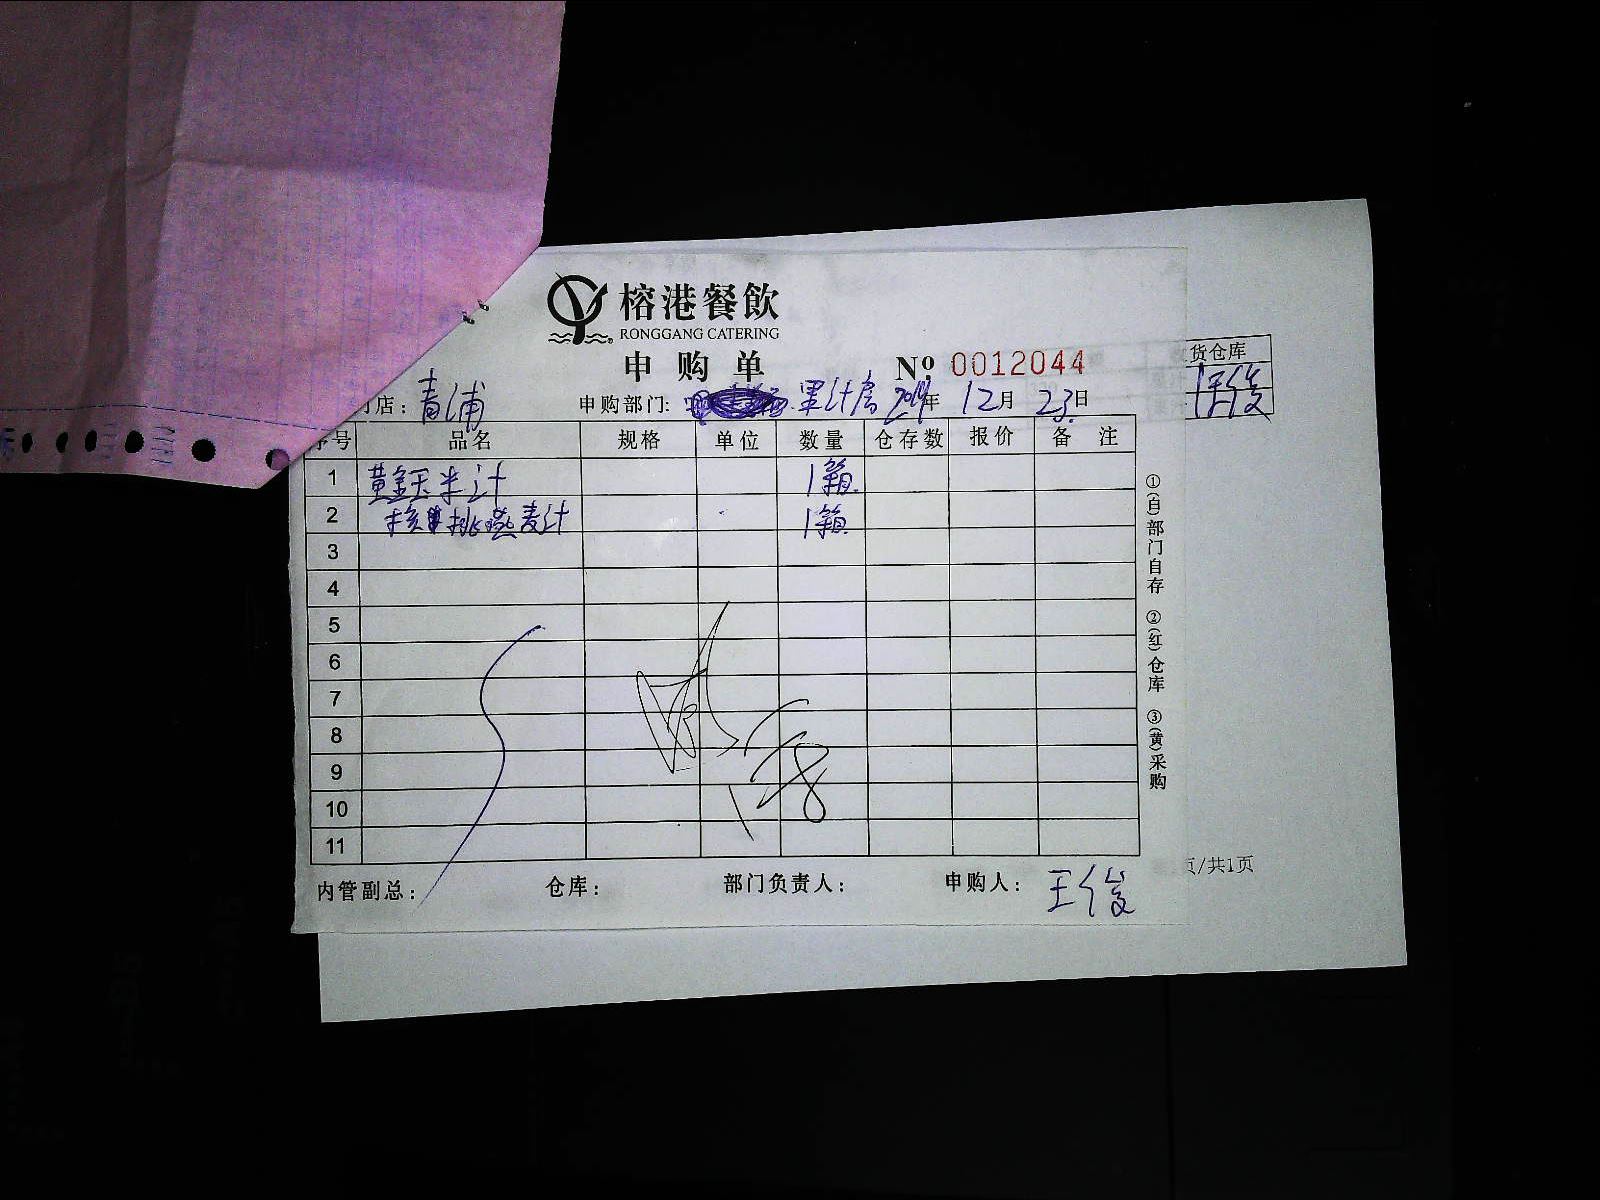 榕港餐飲
RONGGANG CATERING
申购单 № 0012044
货仓库
王俊
店：青浦 申购部门： 2019年 12月 23日
序号 品名 规格 单位 数量 仓存数 报价 备注
1 黄金玉米汁 1箱
2 核桃燕麦汁 1箱
3
4
5
6
7
8
9
10
11
①(白)部门自存 ②(红)仓库 ③(黄)采购
内管副总： 仓库： 部门负责人： 申购人：王俊
页/共1页